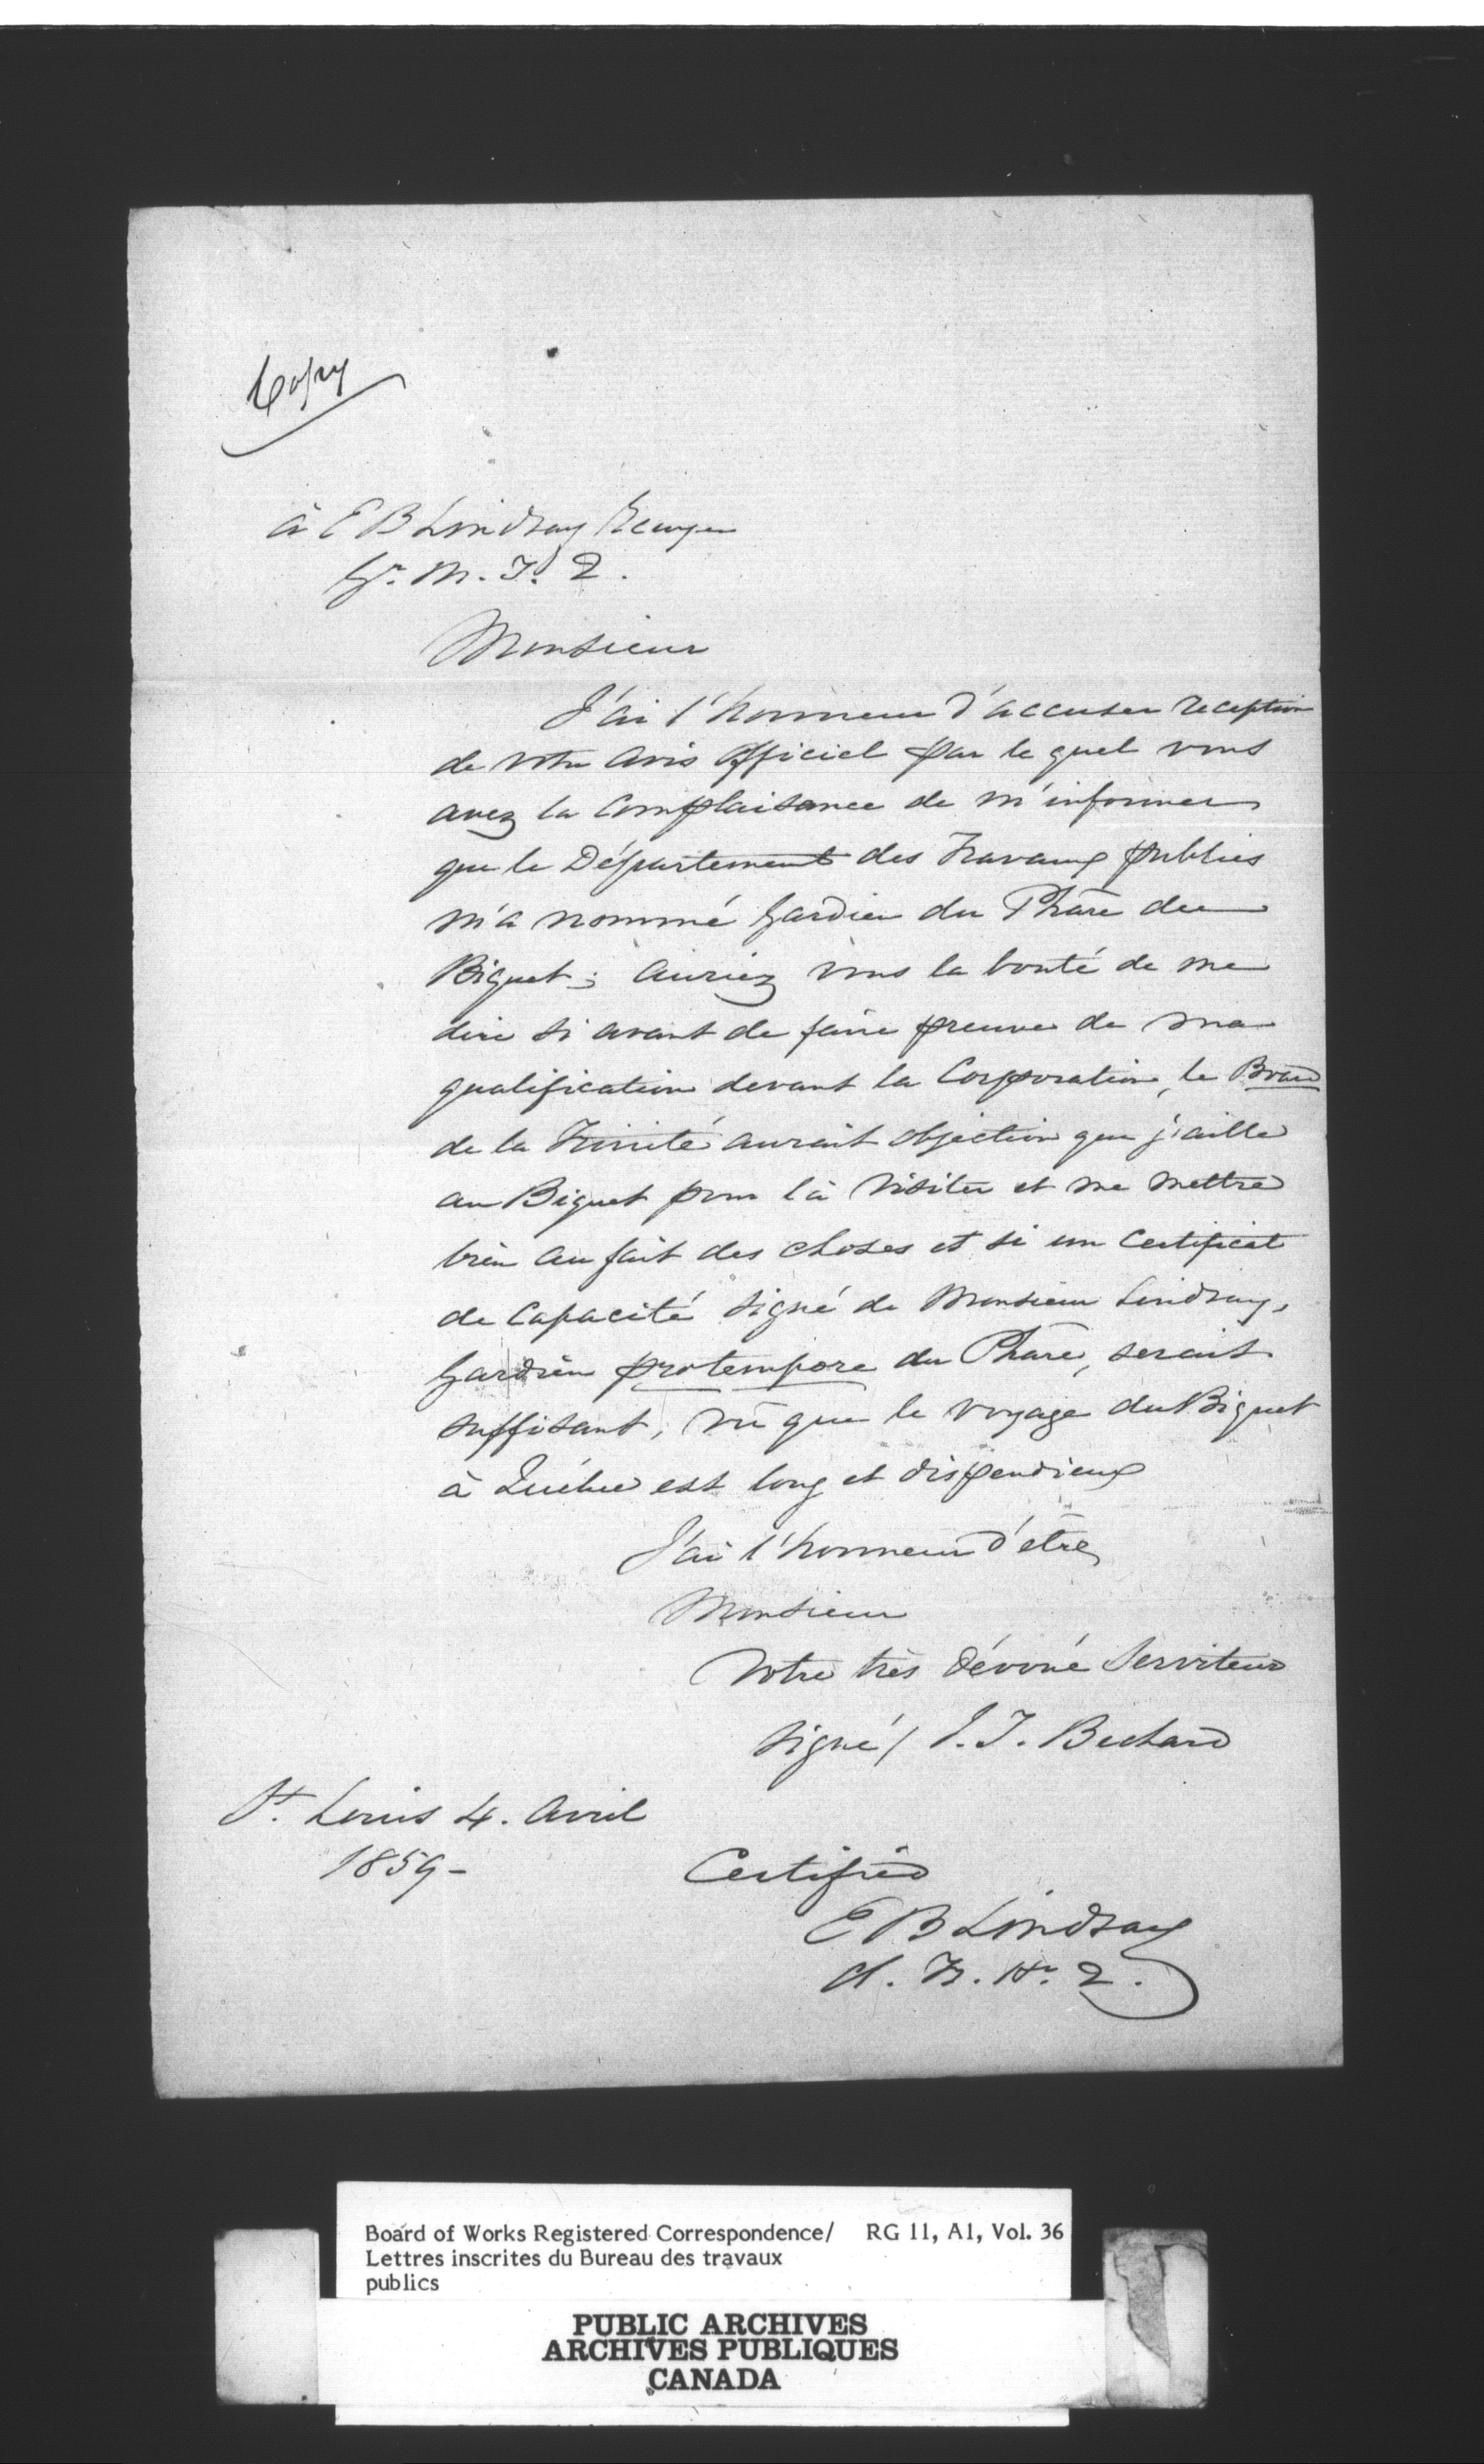 Copy
à E B Lindsay Ecuyer
Gr. M. T. Q.
Monsieur
J'ai l'honneur d'accuser reception
de votre avis officiel par le quel vous
avez la complaisance de m'informer
que le Département des Travaux publics
m'a nommé Gardien du Phare du
Biquet; auriez vous la bonté de me
dire si avant de faire preuve de ma
qualification devant la Corporation, le Board
de la Trinité aurait objection que j'aille
au Biquet pour là visiter et me mettre
bien au fait des choses et si un Certificat
de Capacité signé de Monsieur Lindsay,
Gardien protempore du Phare, serait
suffisant, vû que le voyage du Biquet
à Québec est long et dispendieux
J'ai l'honneur d'être
Monsieur
Votre très dévoué Serviteur
signé / J. J. Bechard
St. Louis 4. Avril
1859-
Certified
E B Lindsay
Cl. Tr. Hs. Q.
Board of Works Registered Correspondence/ RG 11, A1, Vol. 36
Lettres inscrites du Bureau des travaux
publics
PUBLIC ARCHIVES
ARCHIVES PUBLIQUES
CANADA